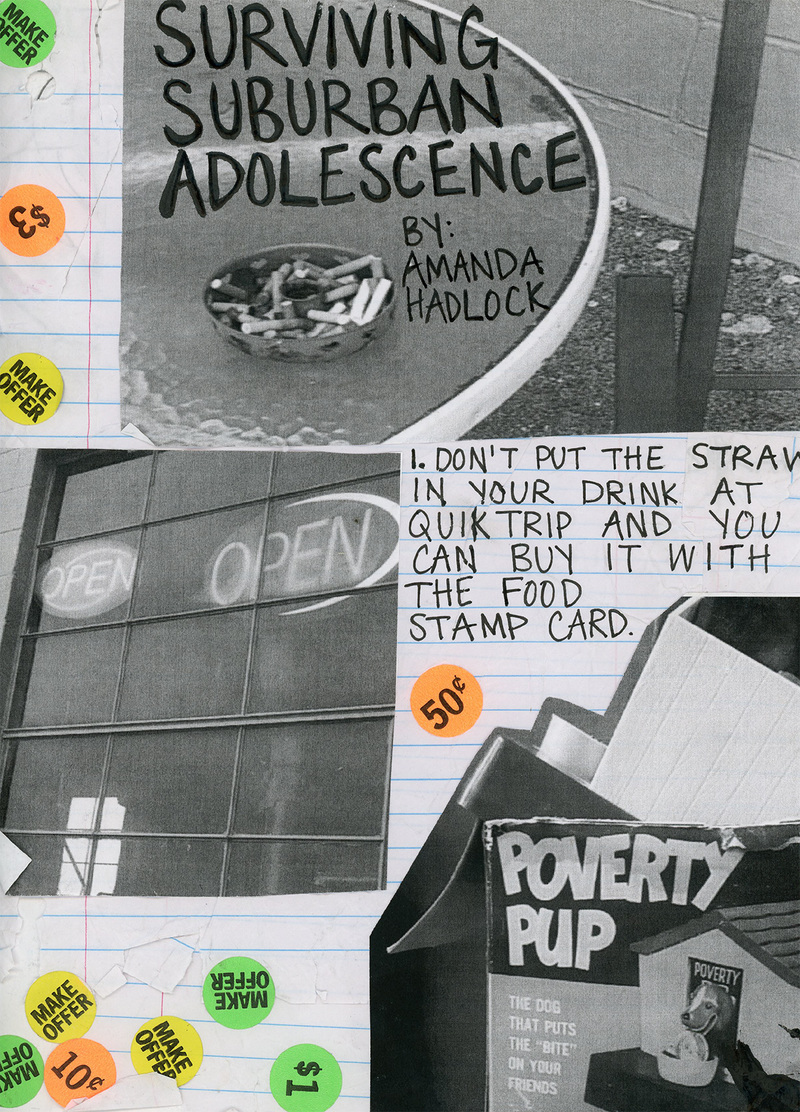 MAKE
OFFER
SURVIVING
SUBURBAN
ADOLESCENCE
BY:
AMANDA
HADLOCK
$3
MAKE
OFFER
OPEN
OPEN
1. DON'T PUT THE STRAW
IN YOUR DRINK AT
QUIKTRIP AND YOU
CAN BUY IT WITH
THE FOOD
STAMP CARD.
50¢
POVERTY
PUP
POVERTY
THE DOG
THAT PUTS
THE "BITE"
ON YOUR
FRIENDS
MAKE
OFFER
MAKE
OFFER
MAKE
OFFER
MAKE
OFFER
10¢
$1